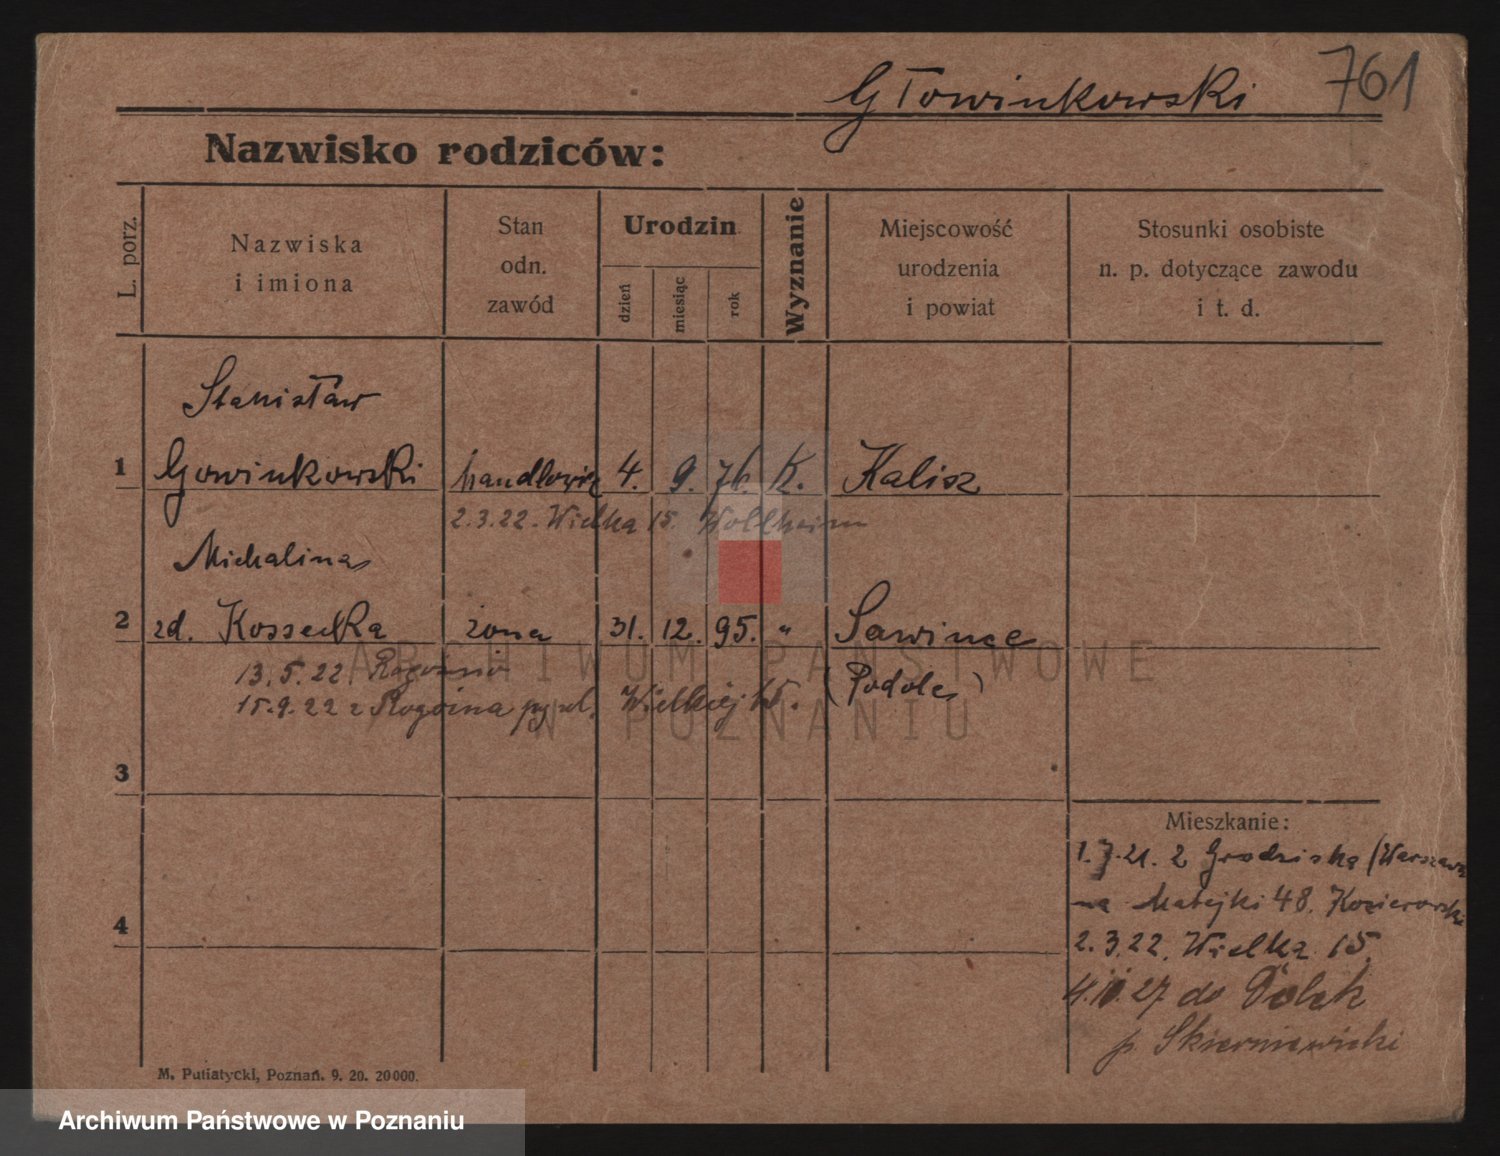 Głowinkowski 761
Nazwisko rodziców:
L. porz.
Nazwiska
i imiona
Stan
odn.
zawód
Urodzin
dzień
miesiąc
rok
Wyznanie
Miejscowość
urodzenia
i powiat
Stosunki osobiste
n. p. dotyczące zawodu
i t. d.
Stanisław
1 Gowinkowski handlowiec 4. 9. 76. K. Kalisz
2.3.22. Wielka 15. Wollheim
Michalina
2 zd. Kossecka żona 31. 12. 95. " Sawince
13.5.22 Rogoźno (Podole)
15.9.22 z Rogoźna Wielkiej 15.
ARCHIWUM PAŃSTWOWE
W POZNANIU
3
Mieszkanie:
1.7.21. z Grodziska (Warszawa
na Matejki 48. Kozierowski
4
2.3.22. Wielka 15.
27 do
p. Skierniewicki
M. Putiatycki, Poznań. 9. 20. 20000.
Archiwum Państwowe w Poznaniu